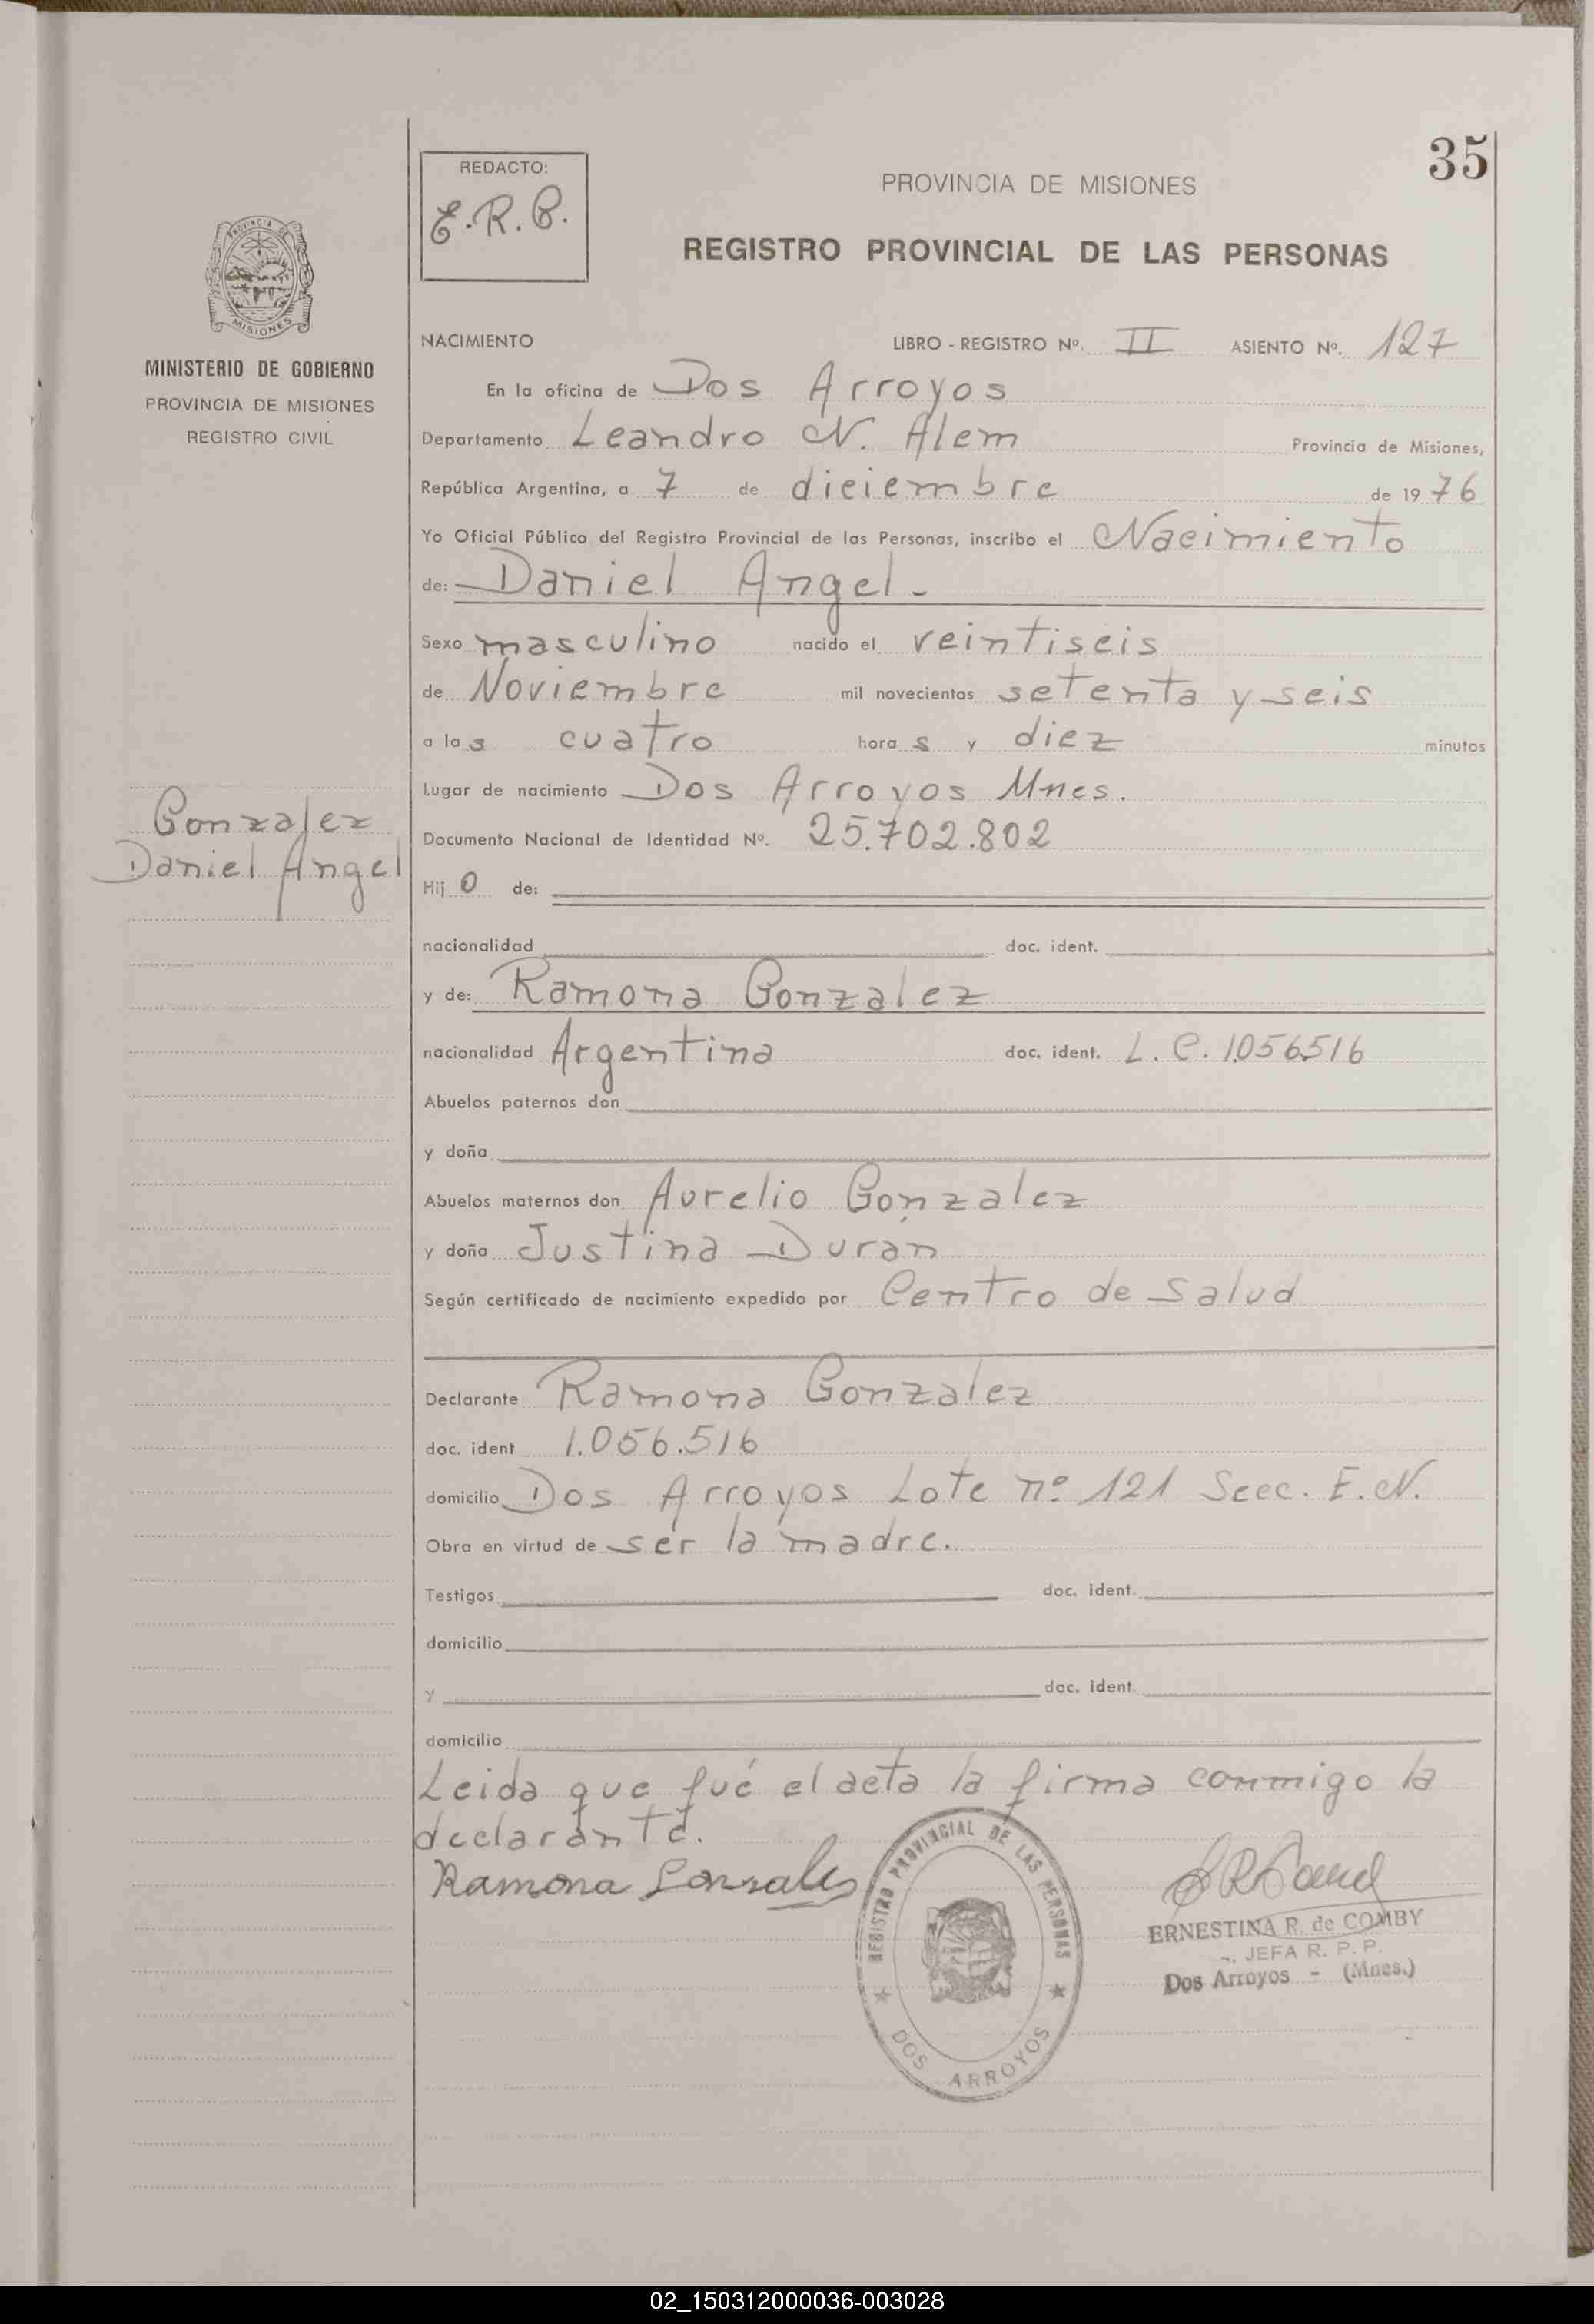 35
REDACTO:
E.R.B.
PROVINCIA DE MISIONES
REGISTRO PROVINCIAL DE LAS PERSONAS
PROVINCIA DE
MISIONES
MINISTERIO DE GOBIERNO
PROVINCIA DE MISIONES
REGISTRO CIVIL
NACIMIENTO LIBRO - REGISTRO Nº. II ASIENTO Nº. 127
En la oficina de Dos Arroyos
Departamento Leandro N. Alem Provincia de Misiones,
República Argentina, a 7 de diciembre de 1976
Yo Oficial Público del Registro Provincial de las Personas, inscribo el Nacimiento
de: Daniel Angel.-
Sexo masculino nacido el veintiseis
de Noviembre mil novecientos setenta y seis
a las cuatro horas y diez minutos
Lugar de nacimiento Dos Arroyos Mnes.
Gonzalez
Daniel Angel
Documento Nacional de Identidad Nº. 25.702.802
Hijo de:
nacionalidad doc. ident.
y de: Ramona Gonzalez
nacionalidad Argentina doc. ident. L.C. 1.056.516
Abuelos paternos don
y doña
Abuelos maternos don Aurelio Gonzalez
y doña Justina Durán
Según certificado de nacimiento expedido por Centro de Salud
Declarante Ramona Gonzalez
doc. ident 1.056.516
domicilio Dos Arroyos Lote nº 121 Secc. E.N.
Obra en virtud de ser la madre.
Testigos doc. ident.
domicilio
y doc. ident.
domicilio
Leida que fué el acta la firma conmigo la
declarante.
Ramona Gonzales
REGISTRO PROVINCIAL DE LAS PERSONAS
DOS ARROYOS
ERNESTINA R. de COMBY
JEFA R. P. P.
Dos Arroyos - (Mnes.)
02_150312000036-003028